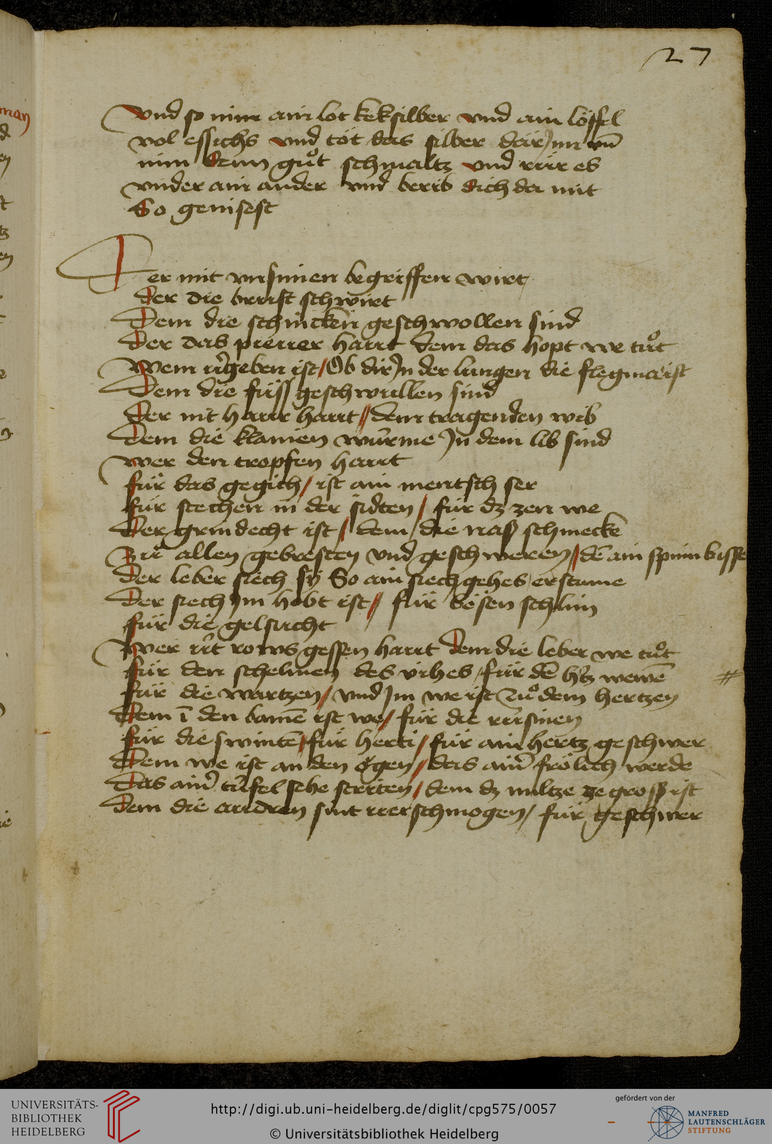 27
vnd so nim ain lot keksilber vnd ain löffel
vol essichs vnd töt das silber dar Jnn vn̄
nim denn gůt schmaltz vnd rür es
vnder ain ander vnd berib dich da mit
So genisest
Der mit vnsinnen begriffen wirt
der die brust schwirt
Dem die schincken geschwollen sind
Der das harrt dem das hopt we tůt
Wem v̈rgeben ist / Ob dir Jn der lungen die flegma ist
Dem die füss geschwullen sind
Der nit harr harrt // dem tragenden wib
Dem die klainen würme Jn dem lib sind
Wer den tropfen harrt
für das gegich / ist ain mentsch ser
für stechen in der sidten / für dz zen we
Der grindecht ist / dem die nass schmecke
Zů allen gebresten vnd geschweren / dē ain spinn bisse
Der leber siech sy So ain siech gehes erstume
Der siech Jm hobt ist // für bösen schlim
für die gelsucht
Wer nit gessen harrt dem die leber we tůt
für den schelmen des vihes / für dē
für die wartzen / vnd Jm we ist zů dem hertzen
Dem ī den we / für die
für die swintē / für herti / für ain hertz geschwer
Dem we ist an den ogen // das ain frölich werde
Das ainē tüfel sehe / dem dz miltze ze gross ist
dem die audren sint verschmogen / für geschwer
UNIVERSITÄTS-
BIBLIOTHEK
HEIDELBERG
http://digi.ub.uni-heidelberg.de/diglit/cpg575/0057
© Universitätsbibliothek Heidelberg
gefördert von der
MANFRED
LAUTENSCHLÄGER
STIFTUNG